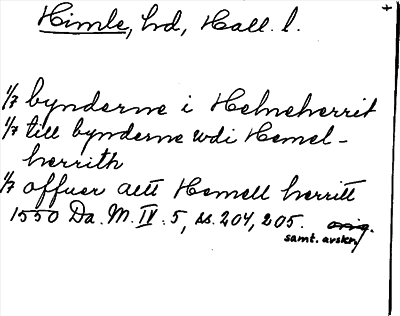 Himle, hd, Hall. l.
1/7 bynderne i Helneherrit
1/7 till bynderne udi Hemel-
herrith
1/7 offuer altt Hemell herritt
1550 Da. M. IV: 5, ss. 204, 205. orig.
samt. avskr.